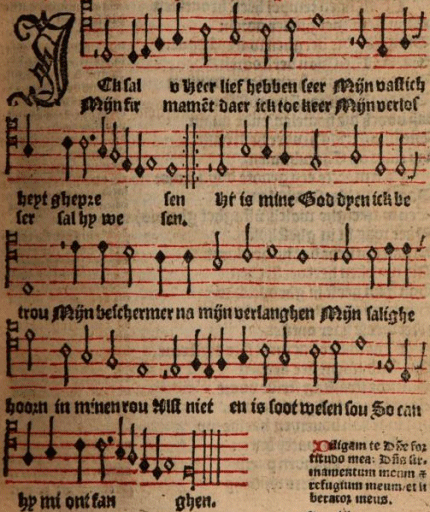 ICk sal v heer lief hebben seer Mijn vastich
Mijn fir mamēt daer ick toe keer Mijn verlos
heyt ghepre sen Hi is mine God dyen ick be
ser sal hy we sen.
trou Mijn beschermer na mijn verlanghen Mijn salighe
hoorn in minen rou Alst niet en is soot wesen sou So can
hy mi ontfan ghen.
Diligam te Dñe for
titudo mea: Dñs fir-
mamentum meum &
refugium meum, et li
berator meus.